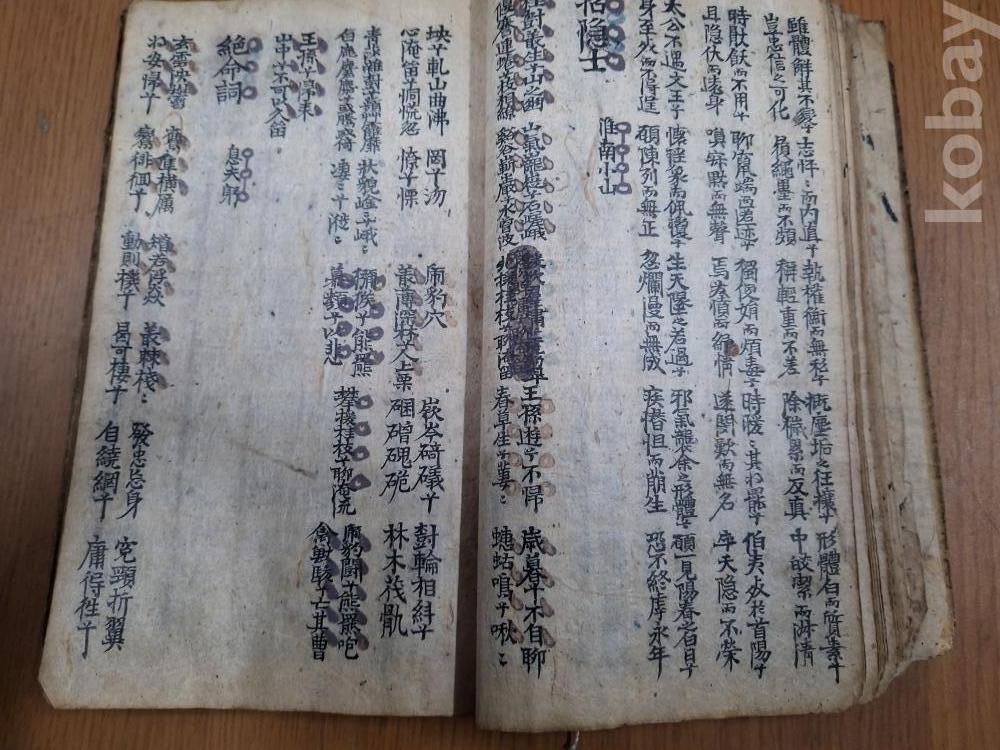 雖體解其不變兮
豈忠信之可化
志怦〻而內直兮
履繩墨而不頗
執權衡而無私兮
稱輕重而不差
概塵垢之枉攘兮
除穢累而反真
形體白而質素兮
中皎潔而淑清
時猒飫而不用兮
且隐伏而遠身
聊竄端而匿迹兮
嗼寂默而無聲
獨便悁而煩毒兮
焉發憤而舒情
時曖〻其將罷兮
遂悶歎而無名
伯夷死於首陽兮
卒夭隐而不榮
太公不遇文王兮
身至死而不得逞
懷瑤象而佩瓊兮
願陳列而無正
生天墜之若過兮
忽爛漫而無成
邪氣襲余之形體兮
疾憯怛而萌生
願一見陽春之白日兮
恐不終乎永年
招隐士
淮南小山
桂樹叢生山之幽
偃蹇連蜷枝相繚
山氣巃嵸石嵯峨
谿谷嶄巖水曾波
虎豹嘷
攀援桂枝聊淹留
王孫遊兮不歸
春草生兮萋〻
歲暮兮不自聊
蟪蛄鳴兮啾〻
坱兮軋山曲岪
心淹留恫慌忽
罔兮沕
憭兮慄
虎豹穴
叢薄深林人上栗
嶔岑碕礒兮
硱磳磈硊
樹輪相糾兮
林木茷骩
白鹿麏麚或騰或倚
狀貌崟〻峨〻
凄〻兮漇〻
獼猴兮熊羆
慕類兮以悲
攀援桂枝兮聊淹流
虎豹鬪兮熊羆咆
禽獸駭兮亡其曹
王孫兮歸来
山中兮不可以久留
絶命詞
息夫躬
玄雲泱鬱
將安歸兮
鷹隼橫厲
鸞徘徊兮
矰若浮猋
動則機兮
叢棘棧〻
曷可棲兮
發忠忘身
自繞網兮
寃頸折翼
庸得往兮
kobay